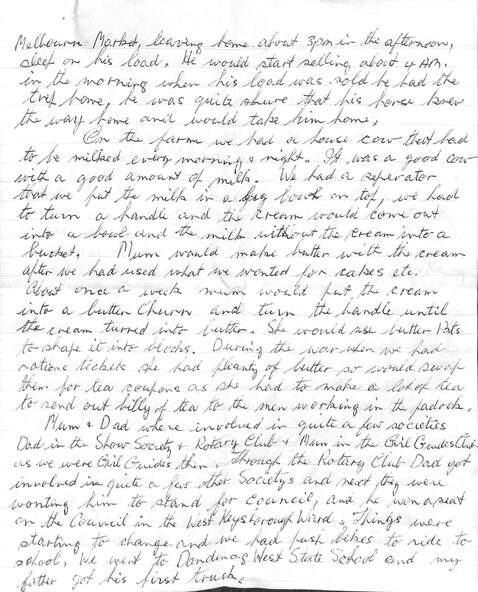 Melbourne Market, leaving home about 3pm in the afternoon,
sleep on his load. He would start selling about 4 AM.
in the morning when his load was sold he had the
trip home, he was quite shure that his horse knew
the way home and would take him home.
On the farm we had a house cow that had
to be milked every morning & night. It was a good cow
with a good amount of milk. We had a seperator
that we put the milk in a big bowl on top, we had
to turn a handle and the cream would come out
into a bowl and the milk without the cream into a
bucket. Mum would make butter with the cream
after we had used what we wanted for cakes etc.
About once a week mum would put the cream
into a butter Churn and turn the handle until
the cream turned into butter. She would use butter Pats
to shape it into blocks. During the war when we had
rations tickets she had plenty of butter so would swap
them for tea coupons as she had to make a lot of tea
to send out billy of tea to the men working in the padock.
Mum & Dad where involved in quite a few societies
Dad in the Show Society & Rotary Club & Mum in the Girl Guides Club
as we were Girl Guides then. Through the Rotary Club Dad got
involved in quite a few other Societys and next they were
wonting him to stand for Council, and he won a seat
on the Council in the West Keysborough Ward. Things were
starting to change and we had push bikes to ride to
school. We went to Dandenog West State School and my
father got his first truck.